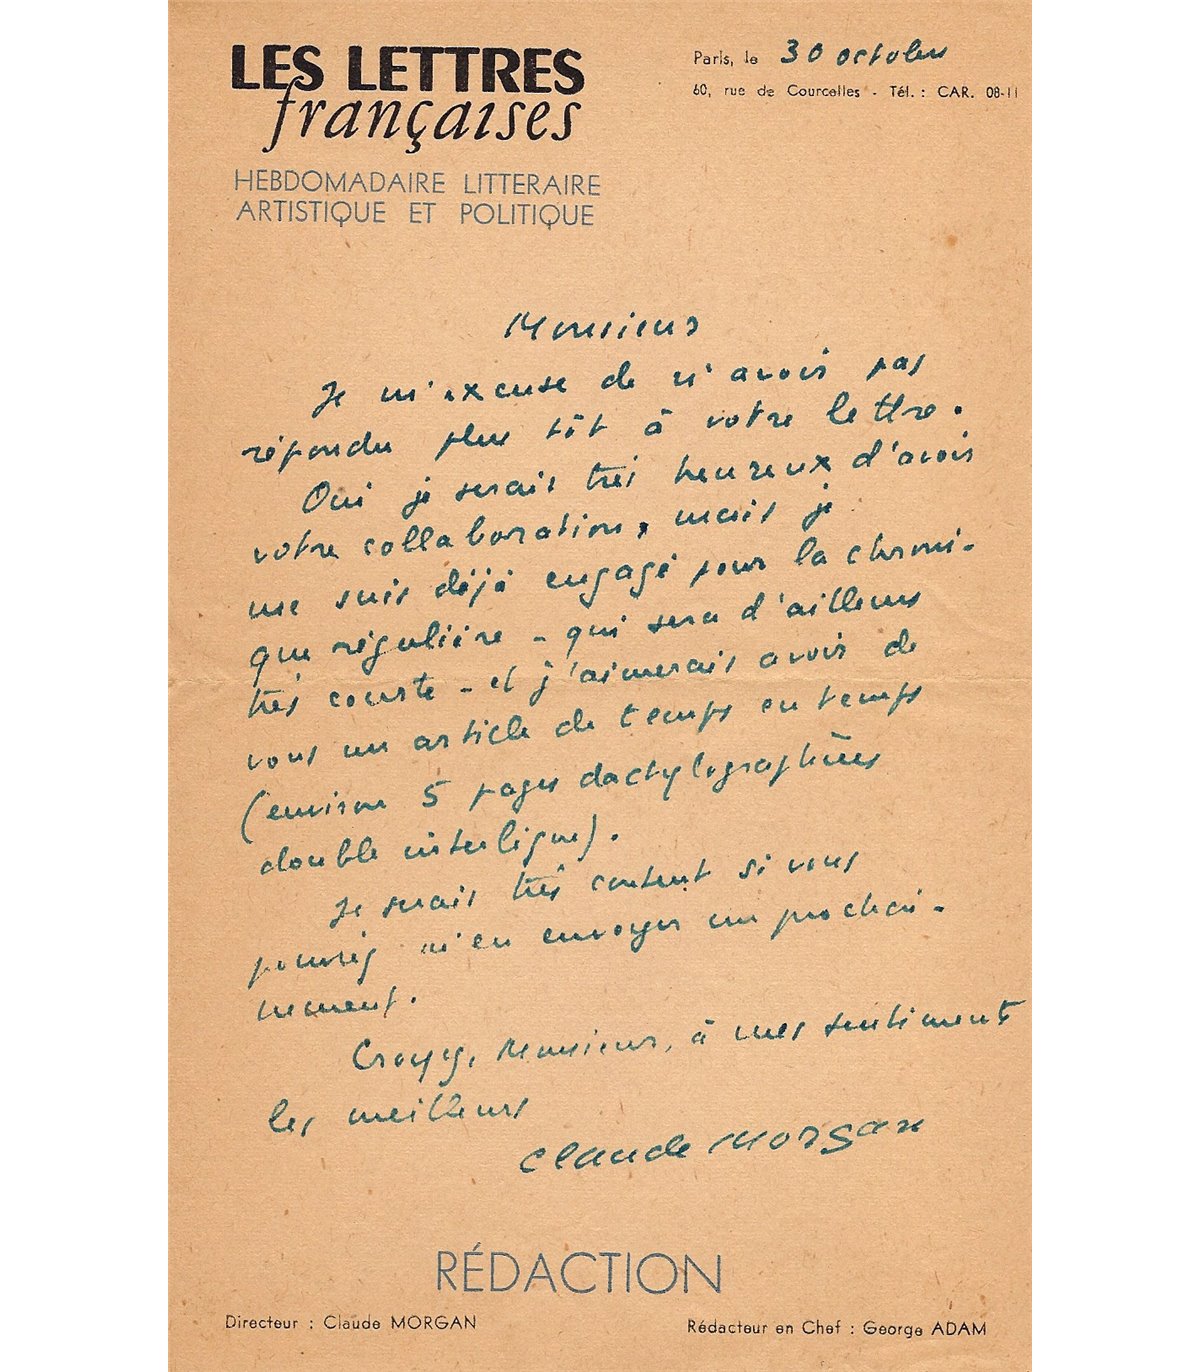 LES LETTRES
françaises
HEBDOMADAIRE LITTERAIRE
ARTISTIQUE ET POLITIQUE
Paris, le 30 octobre
60, rue de Courcelles - Tél. : CAR. 08-11
Monsieur
Je m'excuse de n'avoir pas
répondu plus tôt à votre lettre.
Oui je serais très heureux d'avoir
votre collaboration, mais je
me suis déjà engagé pour la chroni-
que régulière - qui sera d'ailleurs
très courte - et j'aimerais avoir de
vous un article de temps en temps
(environ 5 pages dactylographiées
double interligne).
Je serais très content si vous
pouviez m'en envoyer un prochai-
nement.
Croyez, Monsieur, à mes sentiments
les meilleurs
Claude Morgan
RÉDACTION
Directeur : Claude MORGAN
Rédacteur en Chef : George ADAM